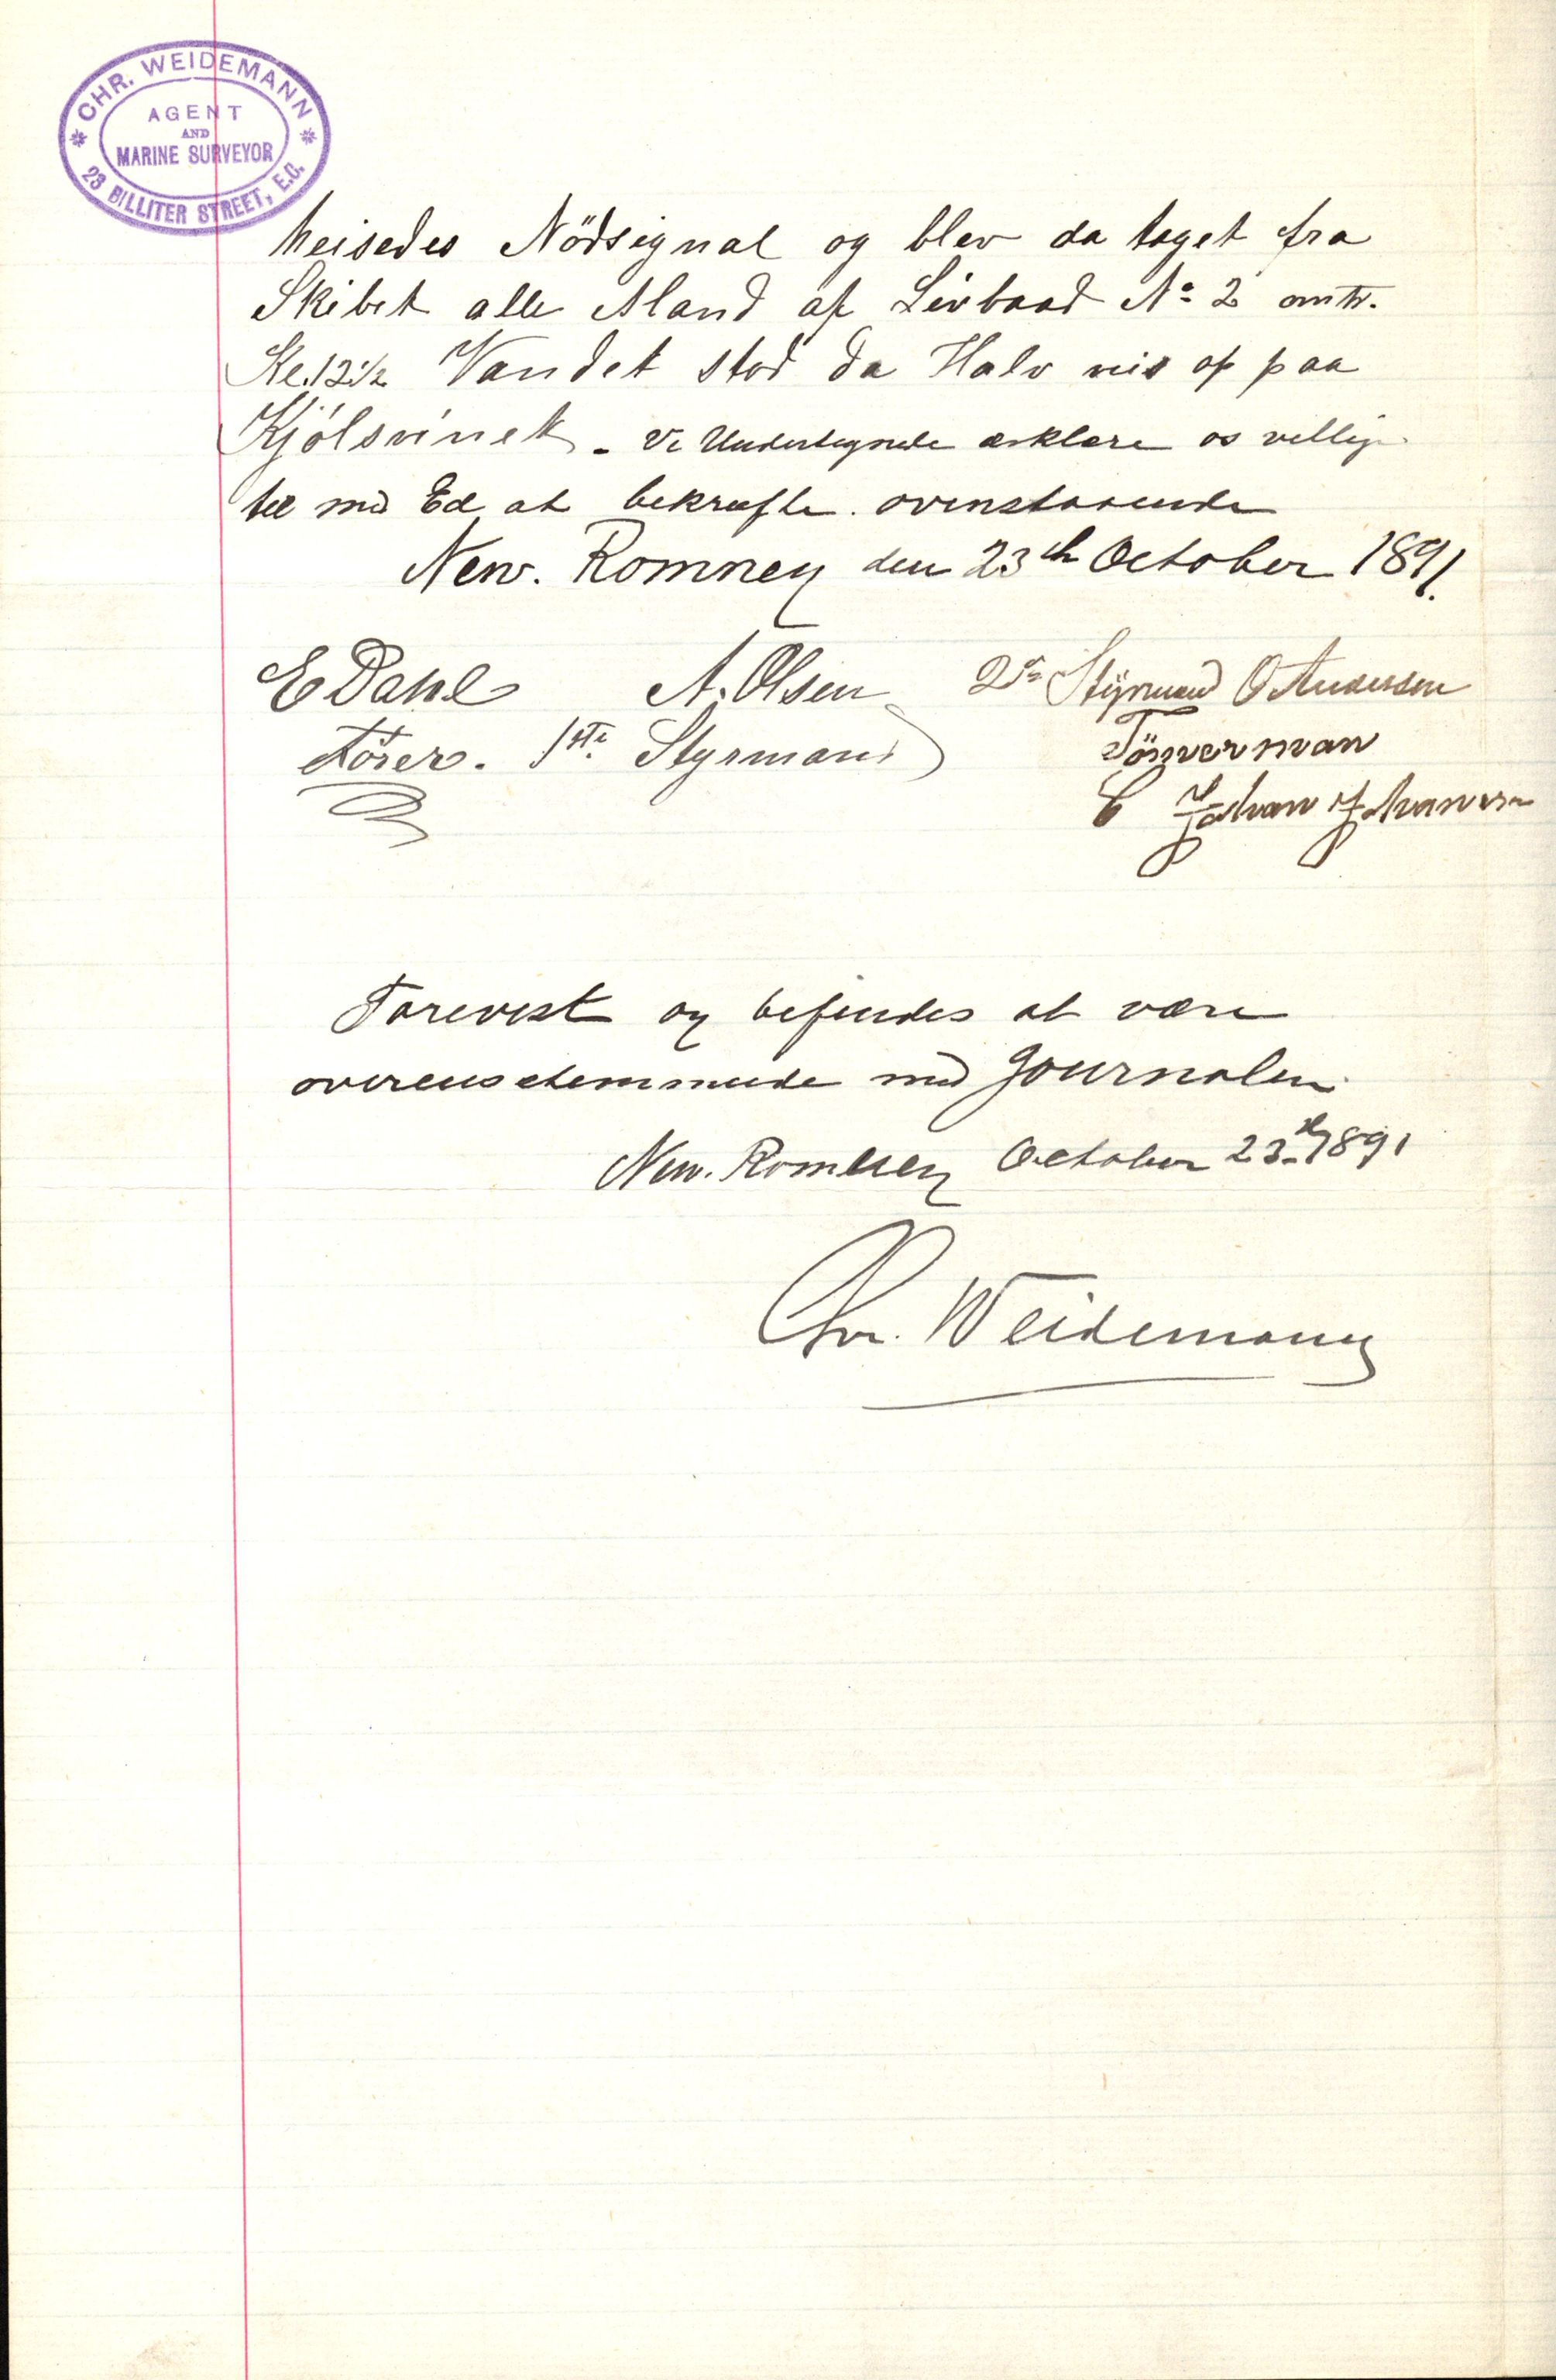 CHR. WEIDEMANN
AGENT
AND
MARINE SURVEYOR
23 BILLITER STREET, E.C.
heisedes Nödsignal og blev da taget fra
Skibet alle Mand af Livbaad No 2 omtr.
Kl. 12 1/2 Vandet stod da Halv veis op paa
Kjölsvinet - Vi Undertegnede erklære os villige
til med Ed at bekræfte ovenstaaende
New. Romney den 23th October 1891.
E Dahl A. Olsen 2den Styrmand O Andersen
Förer. 1ste Styrmand Tömverman
C Johan Johansen
Forevist og befindes at være
overensstemmende med Journalen
New. Romney October 23th 1891
Chr. Weidemann